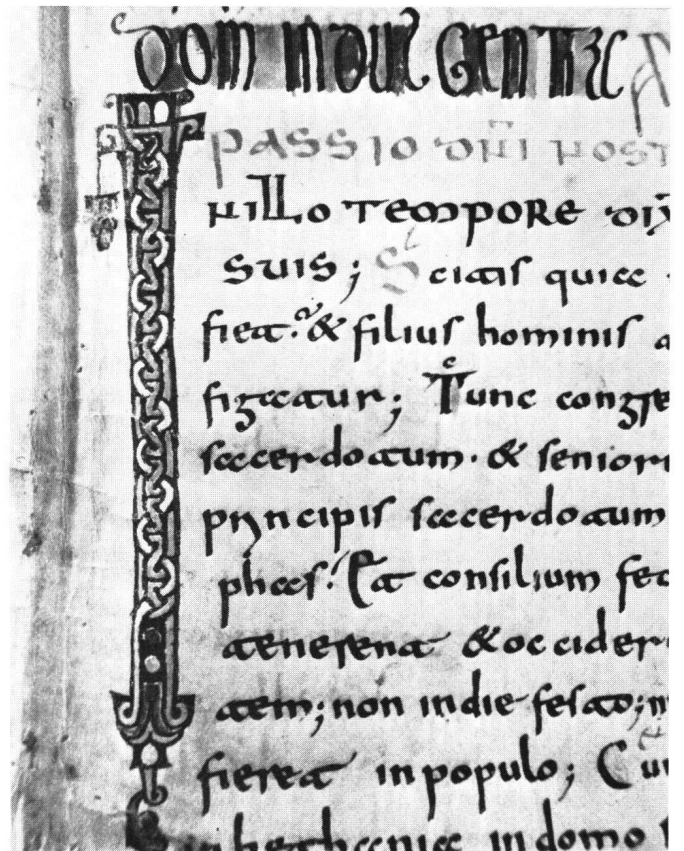 DOM INDUL GENTIAE
PASSIO DNI NOST
N ILLO TEMPORE DIX
SUIS; Scitis quia
fiet. & filius hominis
figatur; Tunc congre
sacerdotum. & seniori
principis sacerdotum
phas. Et consilium fec
tenerent & occider
tem; non in die festo; n
fieret in populo; Cu
bethania in domo